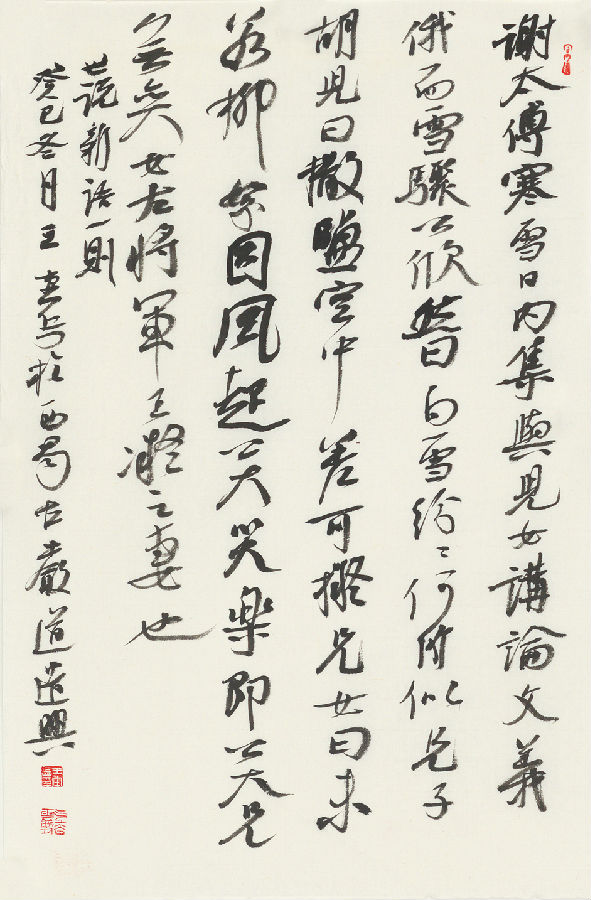 謝太傅寒雪日內集與兒女講論文義
俄而雪驟公欣然曰白雪紛〻何所似兄子
胡兒曰撒鹽空中差可擬兄女曰未
若柳絮因風起公大笑樂即公大兄
無奕女左將軍王凝之妻也
世說新語一則
癸巳冬月王於西蜀古嚴道遣興